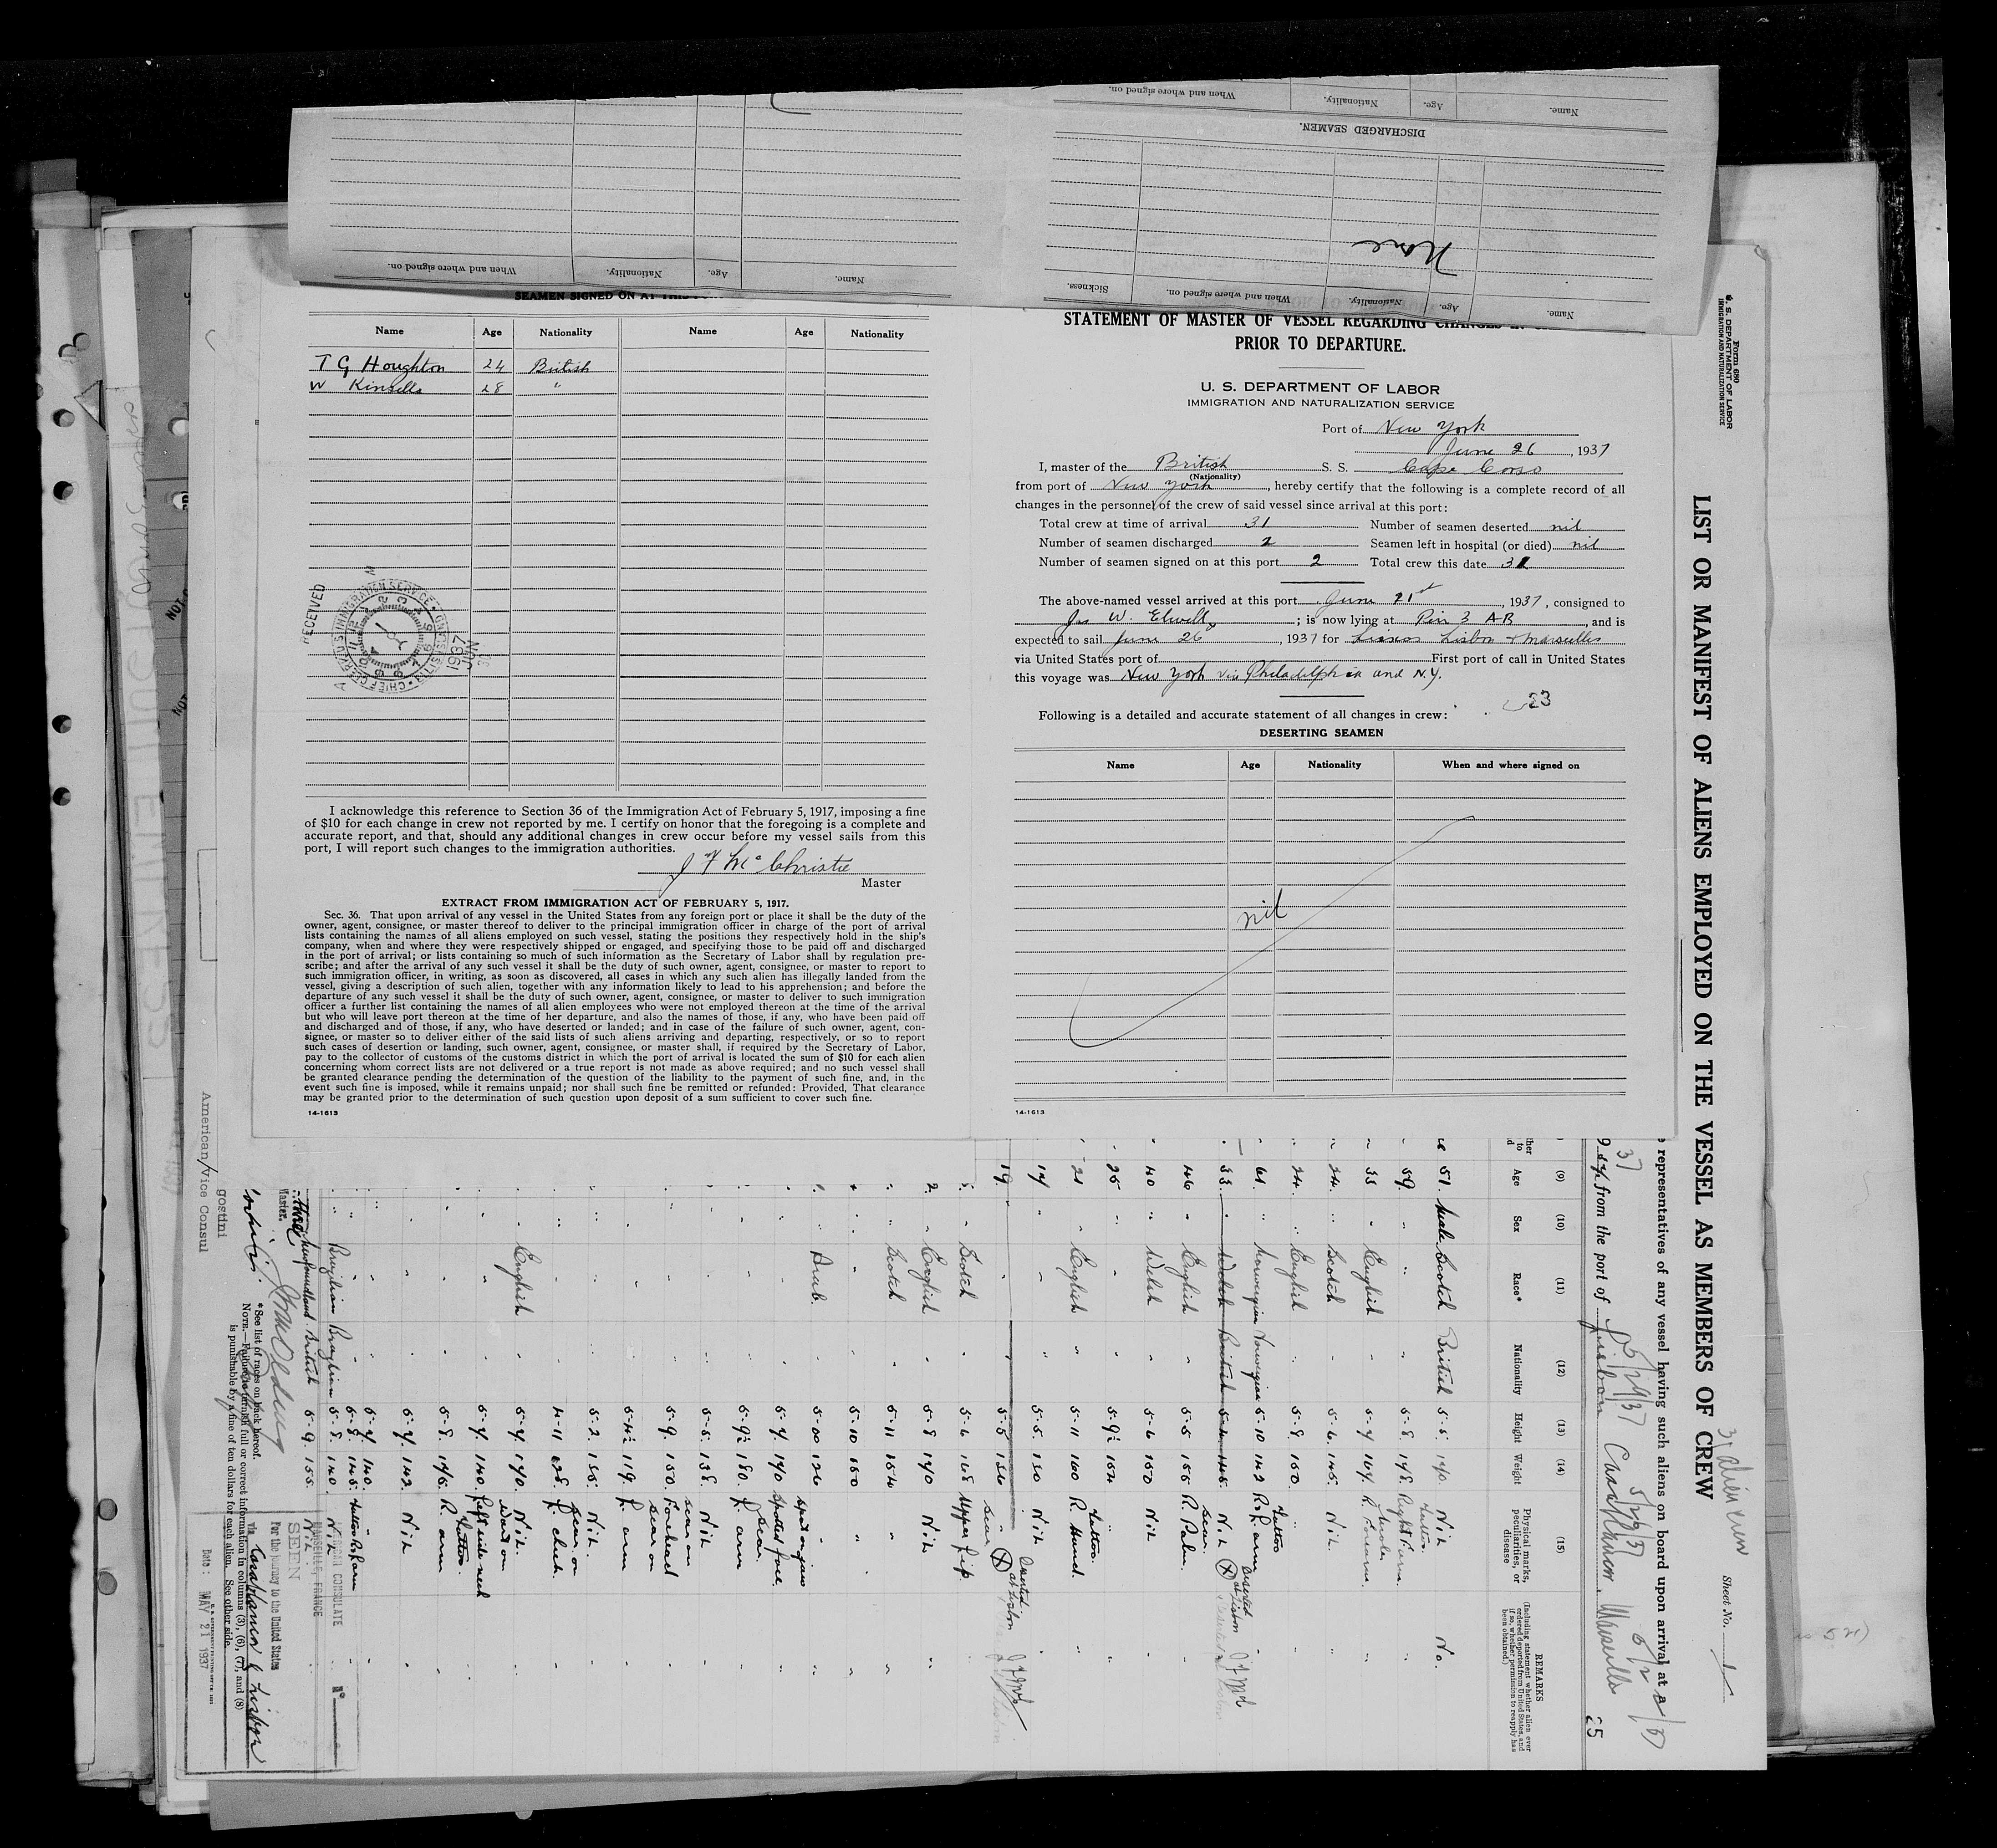 Name. Age. Nationality. When and where signed on.
DISCHARGED SEAMEN.
None
Name. Age. Nationality. When and where signed on. Sickness.
Name. Age. Nationality. When and where signed on.
SEAMEN SIGNED ON AT THIS
Name Age Nationality Name Age Nationality
T G Houghton 24 British
W Kinsella 28 "
RECEIVED
IMMIGRATION SERVICE
1937
JUN
I acknowledge this reference to Section 36 of the Immigration Act of February 5, 1917, imposing a fine
of $10 for each change in crew not reported by me. I certify on honor that the foregoing is a complete and
accurate report, and that, should any additional changes in crew occur before my vessel sails from this
port, I will report such changes to the immigration authorities.
J F McChristie
Master
EXTRACT FROM IMMIGRATION ACT OF FEBRUARY 5, 1917.
Sec. 36. That upon arrival of any vessel in the United States from any foreign port or place it shall be the duty of the
owner, agent, consignee, or master thereof to deliver to the principal immigration officer in charge of the port of arrival
lists containing the names of all aliens employed on such vessel, stating the positions they respectively hold in the ship's
company, when and where they were respectively shipped or engaged, and specifying those to be paid off and discharged
in the port of arrival; or lists containing so much of such information as the Secretary of Labor shall by regulation pre-
scribe; and after the arrival of any such vessel it shall be the duty of such owner, agent, consignee, or master to report to
such immigration officer, in writing, as soon as discovered, all cases in which any such alien has illegally landed from the
vessel, giving a description of such alien, together with any information likely to lead to his apprehension; and before the
departure of any such vessel it shall be the duty of such owner, agent, consignee, or master to deliver to such immigration
officer a further list containing the names of all alien employees who were not employed thereon at the time of the arrival
but who will leave port thereon at the time of her departure, and also the names of those, if any, who have been paid off
and discharged and of those, if any, who have deserted or landed; and in case of the failure of such owner, agent, con-
signee, or master so to deliver either of the said lists of such aliens arriving and departing, respectively, or so to report
such cases of desertion or landing, such owner, agent, consignee, or master shall, if required by the Secretary of Labor,
pay to the collector of customs of the customs district in which the port of arrival is located the sum of $10 for each alien
concerning whom correct lists are not delivered or a true report is not made as above required; and no such vessel shall
be granted clearance pending the determination of the question of the liability to the payment of such fine, and, in the
event such fine is imposed, while it remains unpaid; nor shall such fine be remitted or refunded: Provided, That clearance
may be granted prior to the determination of such question upon deposit of a sum sufficient to cover such fine.
14-1613
STATEMENT OF MASTER OF VESSEL REGARDING CHANGES IN
PRIOR TO DEPARTURE.
U. S. DEPARTMENT OF LABOR
IMMIGRATION AND NATURALIZATION SERVICE
Port of New York
June 26, 1937
I, master of the British S. S. Cape Corso
(Nationality)
from port of New York, hereby certify that the following is a complete record of all
changes in the personnel of the crew of said vessel since arrival at this port:
Total crew at time of arrival 31 Number of seamen deserted nil
Number of seamen discharged 2 Seamen left in hospital (or died) nil
Number of seamen signed on at this port 2 Total crew this date 31
The above-named vessel arrived at this port June 21st, 1937, consigned to
Jas W. Elwell; is now lying at Pier 3 AB, and is
expected to sail June 26, 1937 for Lisbon & Marseilles
via United States port of First port of call in United States
this voyage was New York via Philadelphia and N.Y.
23
Following is a detailed and accurate statement of all changes in crew:
DESERTING SEAMEN
Name Age Nationality When and where signed on
nil
14-1613
Form 680
U. S. DEPARTMENT OF LABOR
IMMIGRATION AND NATURALIZATION SERVICE
LIST OR MANIFEST OF ALIENS EMPLOYED ON THE VESSEL AS MEMBERS OF CREW
31 alien crew
Sheet No. 1
representatives of any vessel having such aliens on board upon arrival at a
37 5/29/37 5/29/37
from the port of Lisbon Casablanca. Marseilles
25
(9) (10) (11) (12) (13) (14) (15)
Age Sex Race* Nationality Height Weight Physical marks, peculiarities, or disease
REMARKS
(Including statement whether alien ever ordered deported from United States, and if so, whether permission to reapply has been obtained.)
51. Male Scotch British 5-5. 140. Nil No.
59 " " " 5-8. 148. Tattoo. Right
33 " English " 5-7 164
24. " Scotch " 5-6. 145. Nil.
24. " English " 5-8. 150. "
61. " Norwegian Norwegian 5-10 142 Tattoo R & L arm
33. " Welsh British 5-4 145. Nil Deserted at Lisbon
46 " English " 5-5 155 Scar. R. Palm.
40 " Welsh " 5-6 150 Nil
25 " " " 5-9½ 154
21 " English " 5-11 160 Tattoo. R. Hand.
17 " " " 5-5. 130 Nil
19 " " " 5-5 136 Scar Deserted at Lisbon
Scotch " 5-6 148 Upper Lip.
English " 5-8 140 Nil
Scotch " 5-11 154 "
" " 5-10 150 "
Arab. " 5-00 126
" " 5-7. 140 Spotted face
" " 5-9½ 180. Scar. L. arm
" " 5-5. 138. Nil
" " 5-9. 150. Scar on Forehead
" " 5-4½ 119. Scar on L. arm
" " 5-2. 135. Nil.
" " 4-11 Scar on L. cheek
English " 5-7. 140. Nil.
" " 5-7. 140. left side neck
" " 5-8. 146. Tattoo. R. arm
" " 5-7. 142. Nil
" " 5-7. 140.
" " 5-8. 145. Tattoo R. arm
Brazilian Brazilian 5-8. 140. Nil
Newfoundland British 5-9. 155. Nil
Master.
*See list of races on back hereof.
NOTE.—Failure to furnish full or correct information in columns (3), (6), (7), and (8)
is punishable by a fine of ten dollars for each alien. See other side.
gostini
American/Vice Consul
AMERICAN CONSULATE
MARSEILLE, FRANCE
SEEN
For the journey to the United States
via Casablanca & Lisbon
Date: MAY 21 1937